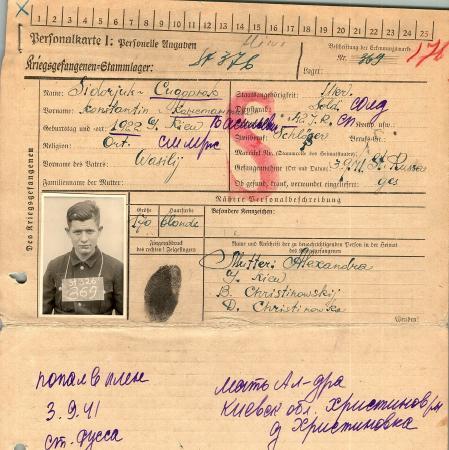 1 2 3 4 5 6 7 8 9 10 11 12 13 14 15 16 17 18 19 20 21 22 23 24 25
Personalkarte I: Personelle Angaben
Beschriftung der Erkennungsmarke
Kriegsgefangenen-Stammlager: St 326
Nr. 369
Lager:
176
Des Kriegsgefangenen
Name: Sidorjuk - Сидорюк
Staatsangehörigkeit: Ukr.
Vorname: Konstantin Константин
Dienstgrad: Sold. солд
Geburtstag und -ort: 1922 G. Kiew Васильевич
J.R.
Religion: Ort.
Zivilberuf: Schlosser Berufs-Gr.:
Vorname des Vaters: Wasilij
Matrikel Nr. (Stammrolle des Heimatstaates):
Gefangennahme (Ort und Datum): 3.9.41 St. Russa
Familienname der Mutter:
Ob gesund, krank, verwundet eingeliefert: ges
Nähere Personalbeschreibung
Größe Haarfarbe Besondere Kennzeichen:
170 blonde
Fingerabdruck
des rechten Zeigefingers
Name und Anschrift der zu benachrichtigenden Person in der Heimat
des Kriegsgefangenen
Mutter: Alexandra
G. Kiew
B. Christinowskij
D. Christinowka
St 326
369
Wenden!
попал в плен
3.9.41
ст. Русса
мать Ал-дра
Киевск обл. Христинов рн
д Христиновка